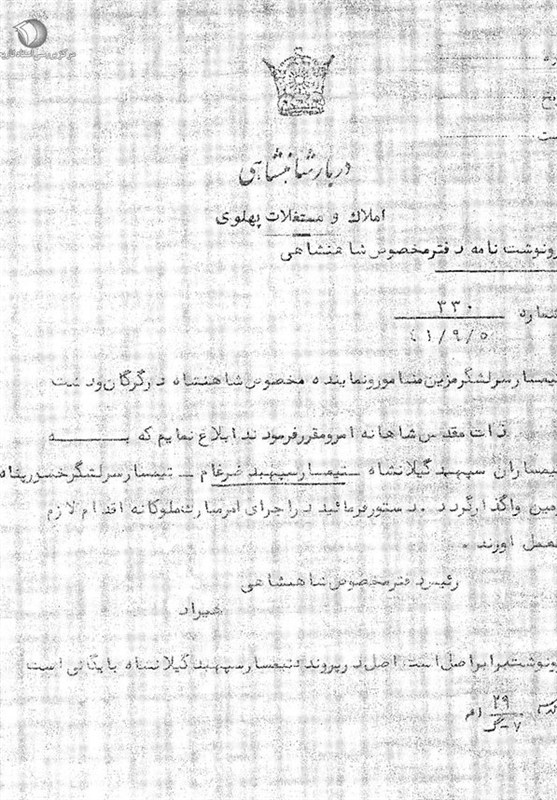 دربار شاهنشاهی
املاك و مستغلات پهلوی
رونوشت نامه دفتر مخصوص شاهنشاهی
شماره ۳۳۰
۴۱/۹/۵
تیمسار سرلشگر مزین مامور و نماینده مخصوص شاهنشاه در گرگان و دشت
ذات مقدس شاهانه امر و مقرر فرمودند ابلاغ نمایم که به
تیمساران سپهبد گیلانشاه ـ تیمسار سپهبد ضرغام ـ تیمسار سرلشگر خسرو پناه
زمین واگذار گردد . دستور فرمائید در اجرای امر مبارك ملوکانه اقدام لازم
بعمل آورند .
رئیس دفتر مخصوص شاهنشاهی
هیراد
رونوشت برابر اصل است اصل در پرونده تیمسار سپهبد گیلانشاه بایگانی است
۲۹